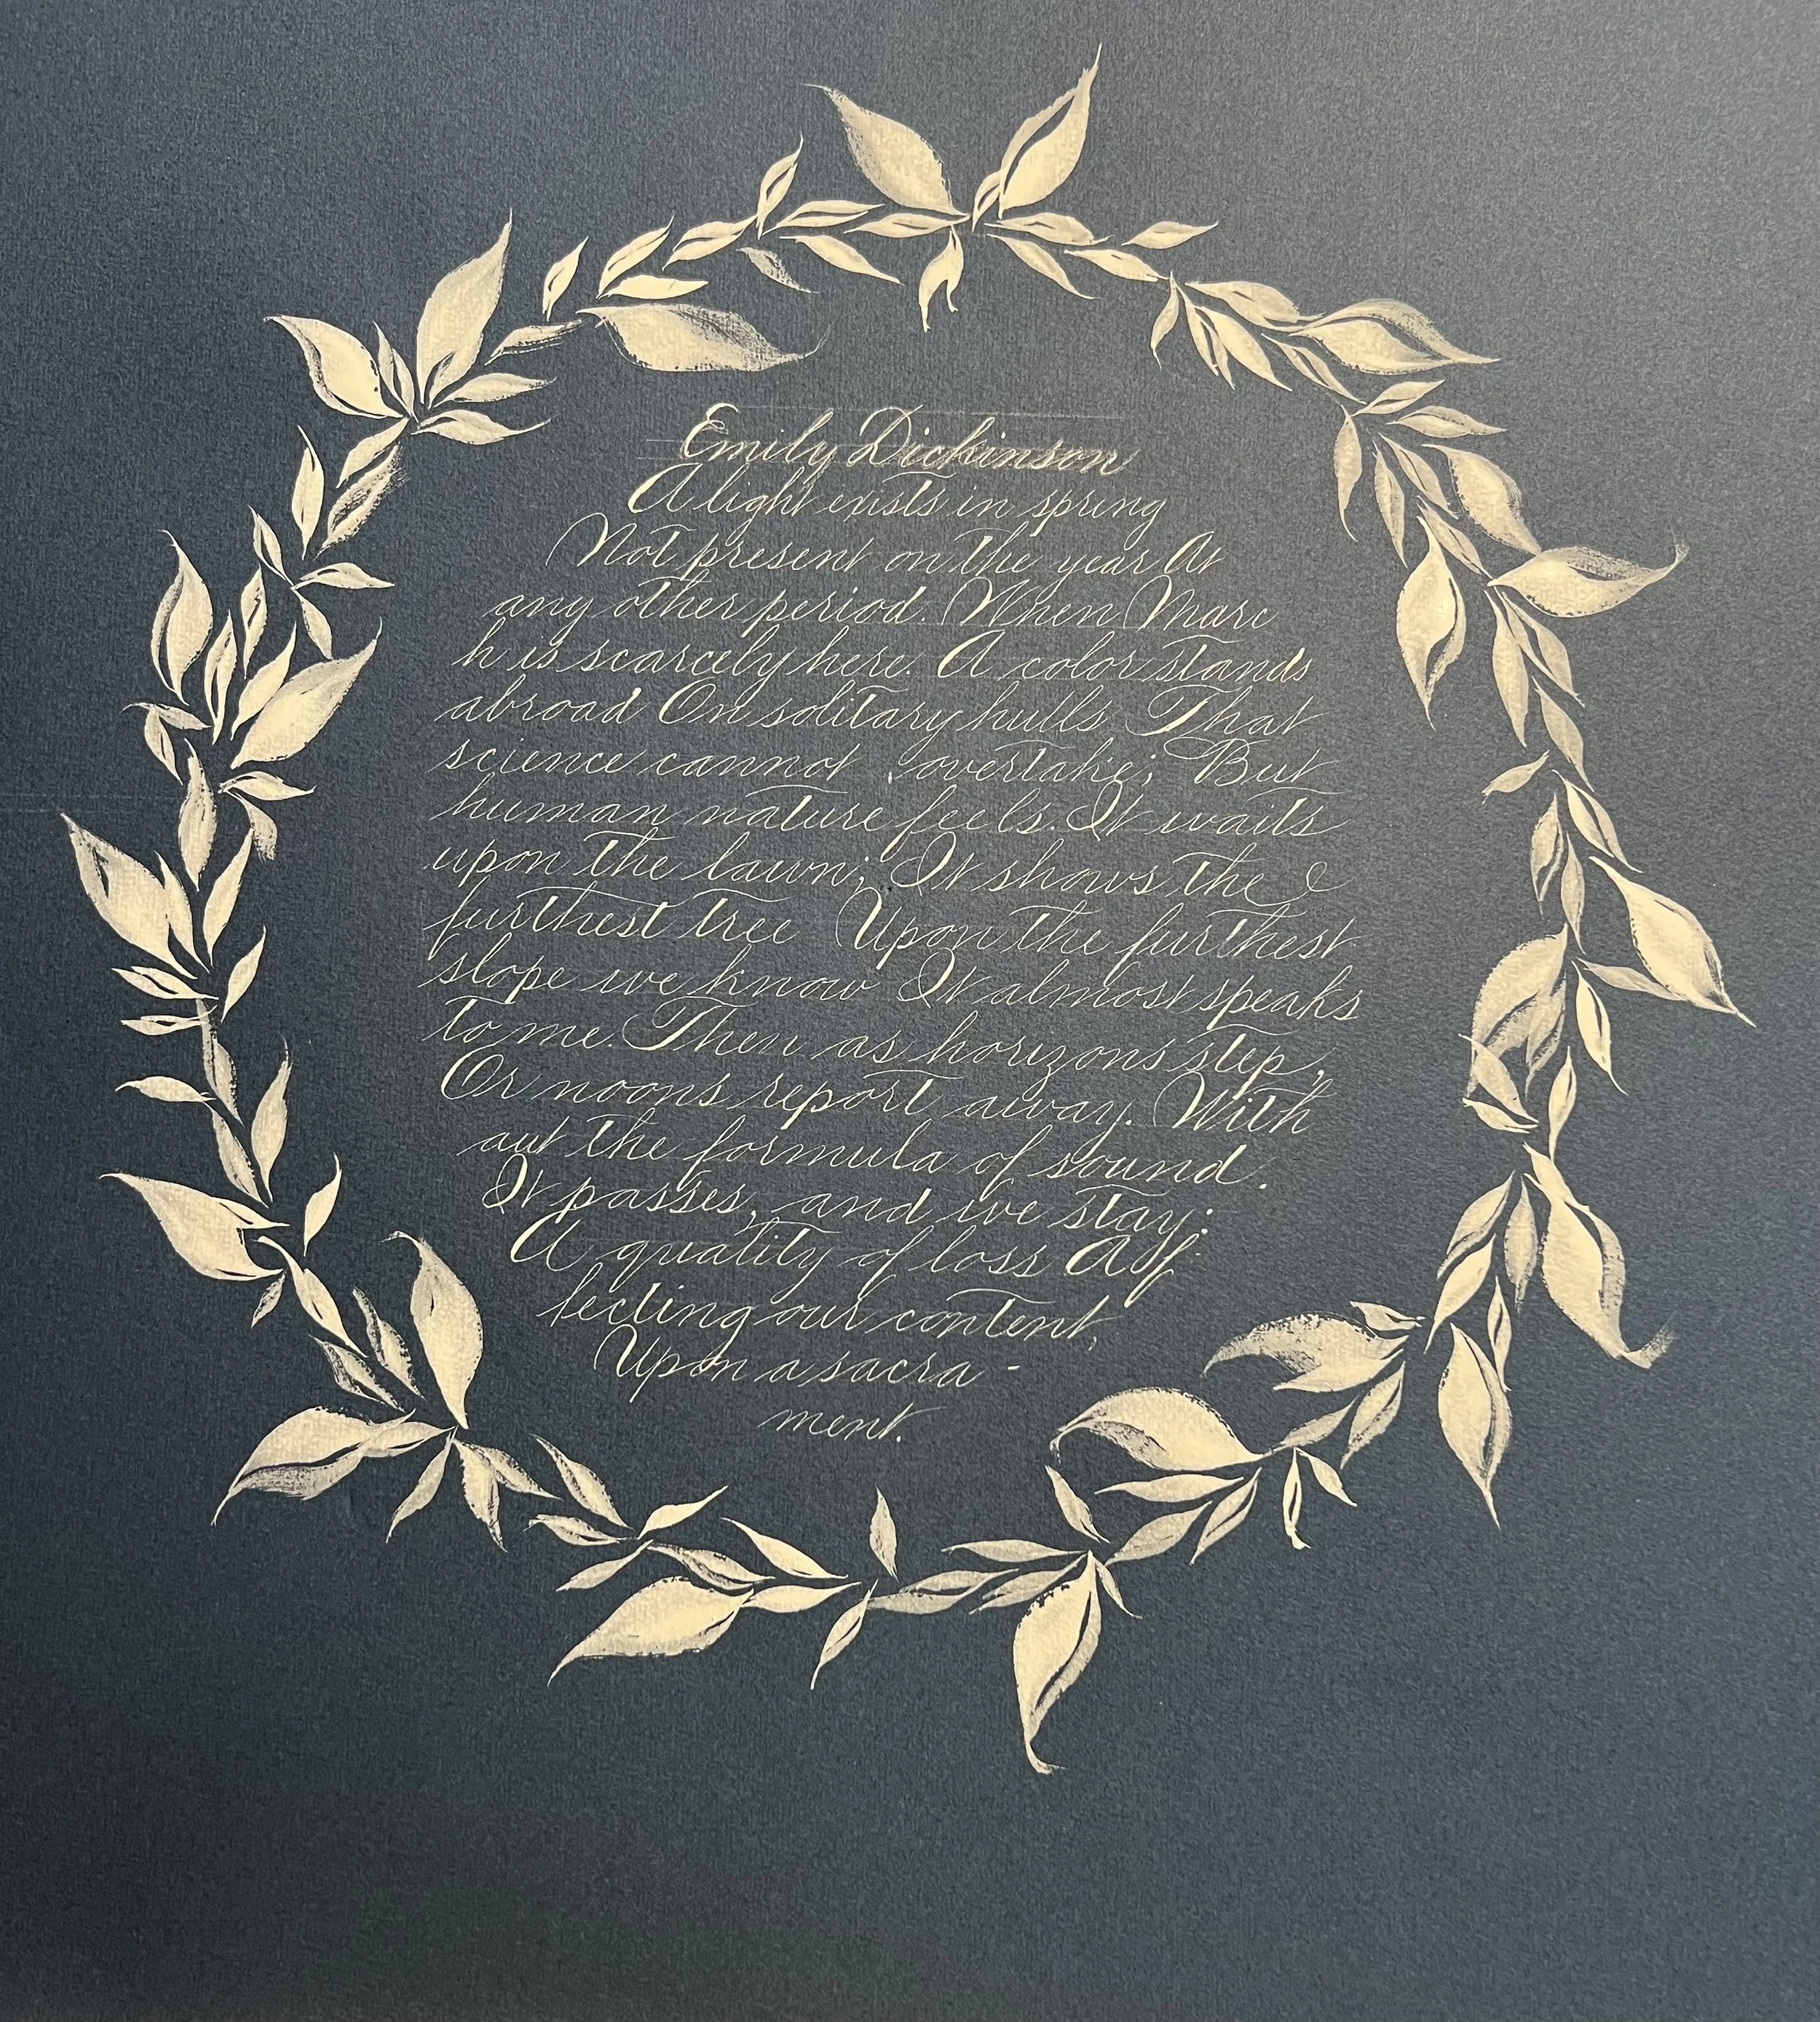 Emily Dickinson
A light exists in spring
Not present on the year At
any other period. When Marc
h is scarcely here. A color stands
abroad On solitary hills That
science cannot overtake; But
human nature feels. It waits
upon the lawn; It shows the
furthest tree Upon the furthest
slope we know It almost speaks
to me. Then as horizons step,
Or noons report away. With
out the formula of sound.
It passes, and we stay:
A quality of loss Aff
fecting our content,
Upon a sacra-
ment.